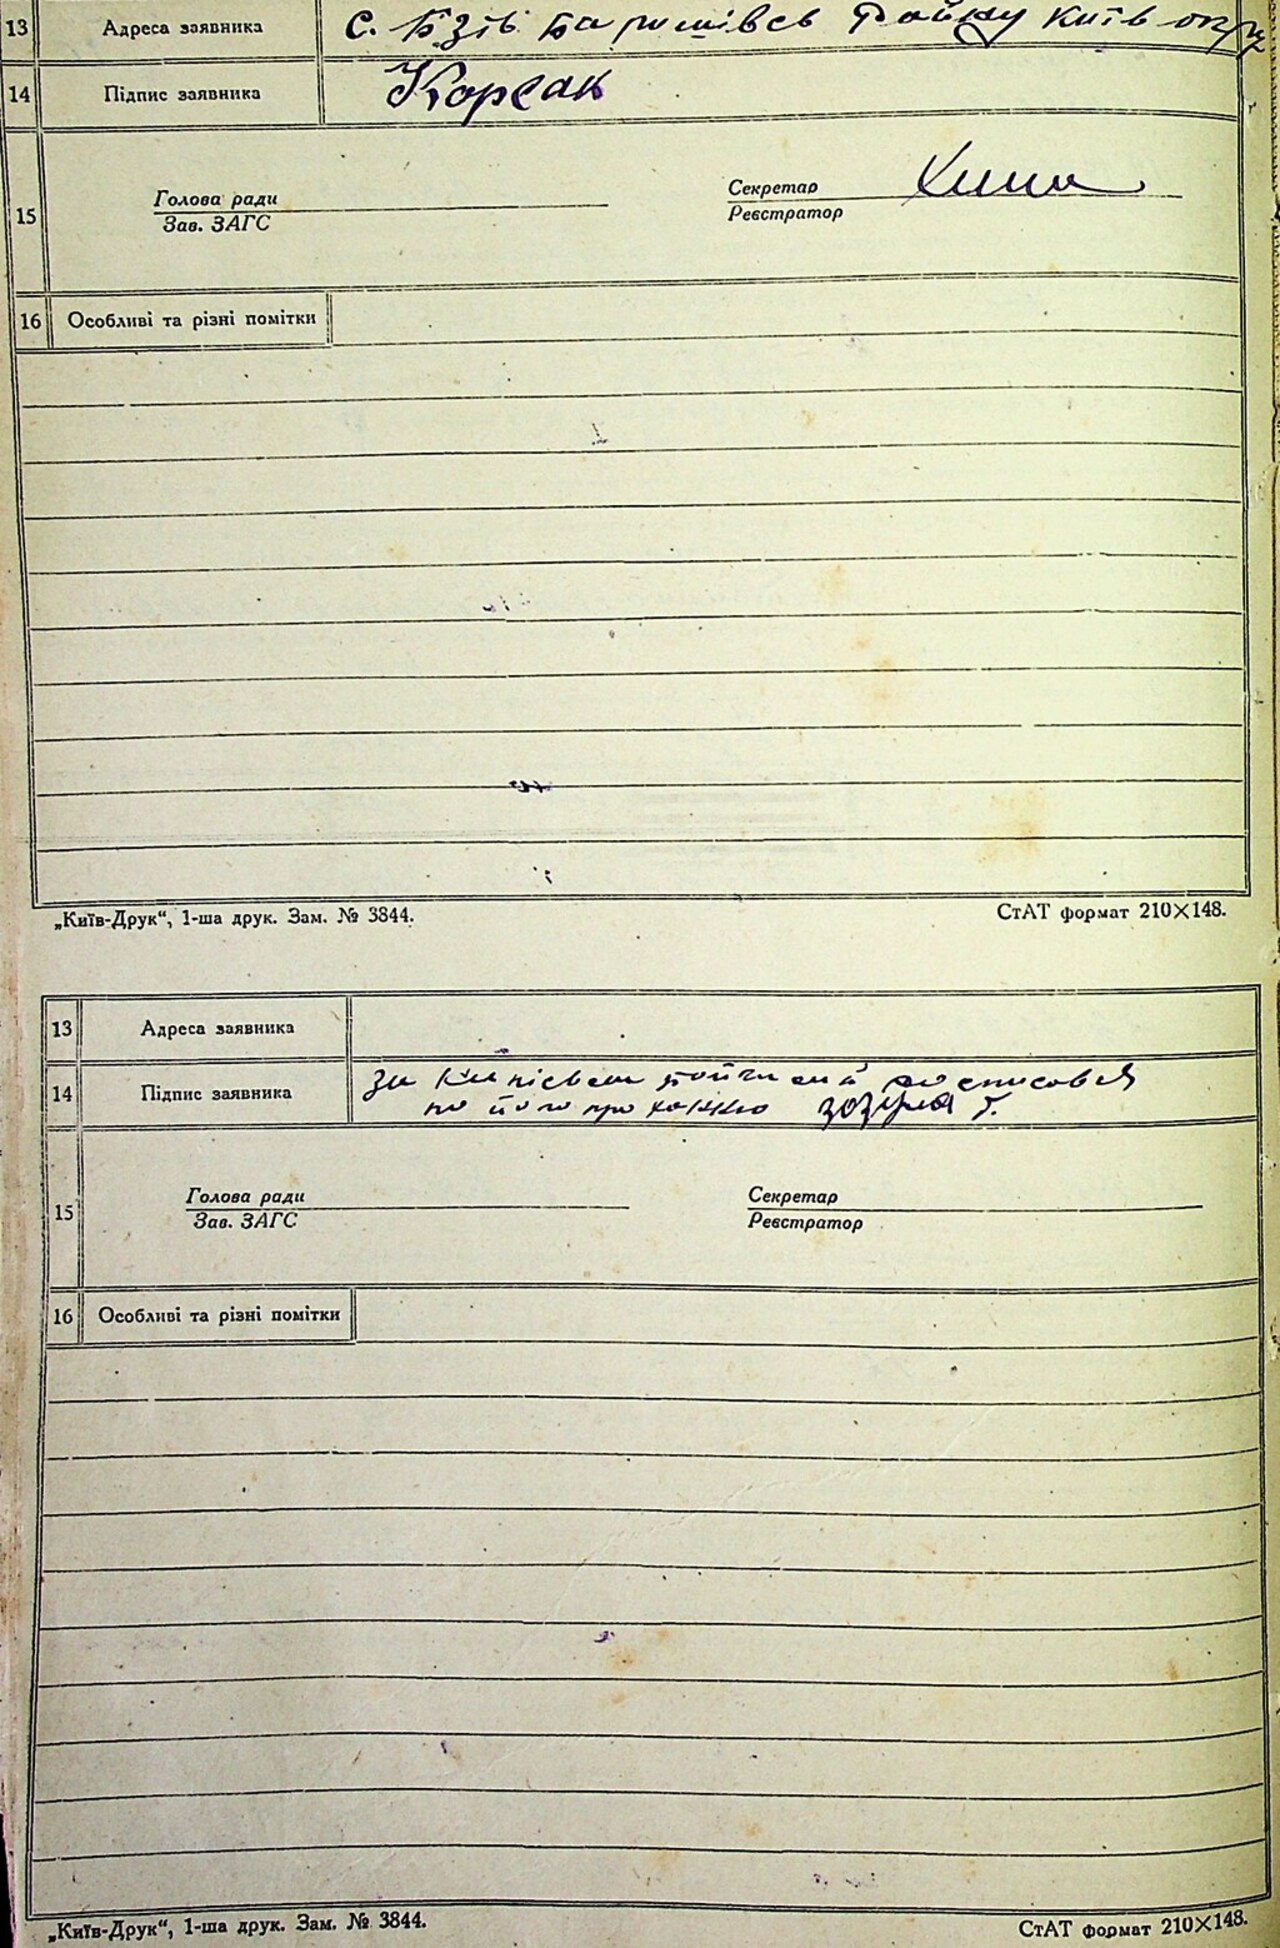 13 Адреса заявника с. Бзів Баришівсь Району Київ окр
14 Підпис заявника Корсак
15
Голова ради Секретар
Зав. ЗАГС Реєстратор
16 Особливі та різні помітки
„Київ-Друк“, 1-ша друк. Зам. № 3844. СтАТ формат 210×148.
13 Адреса заявника
14 Підпис заявника за росписовся
по його проханню Зозуля Г.
15
Голова ради Секретар
Зав. ЗАГС Реєстратор
16 Особливі та різні помітки
„Київ-Друк“, 1-ша друк. Зам. № 3844. СтАТ формат 210×148.